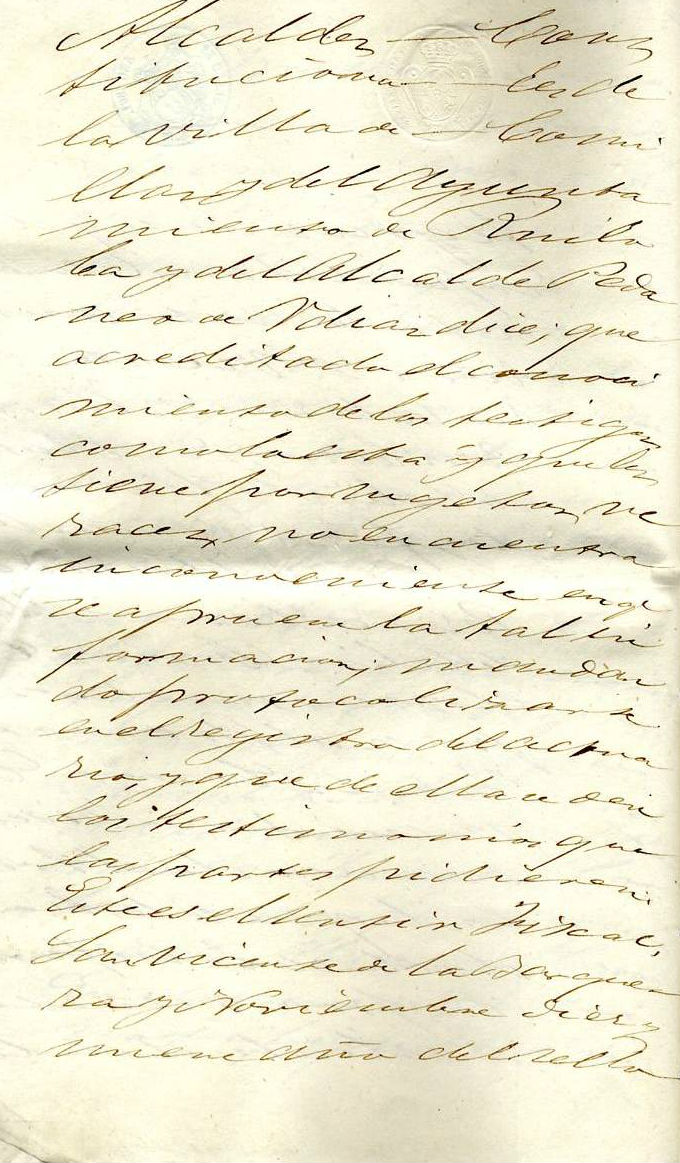 Alcaldes — Cons
titucional — es de
la villa de — Comi
llas y del Ayunta
miento de Ruilo
ba y del Alcalde Peda
neo de Udias dice; que
acreditado el conoci
miento de los testigos
como lo está y que los
tiene por sugetos ve
races, no encuentra
inconveniente en qe
se apruebe la tal in
formacion; mandan
do protocolizarse
en el registro del actua
rio, y que de ella se den
los testimonios que
las partes pidieren.
Este es el sentir fiscal,
San Vicente de la Barque
ra y Noviembre diez y
nueve año del sello